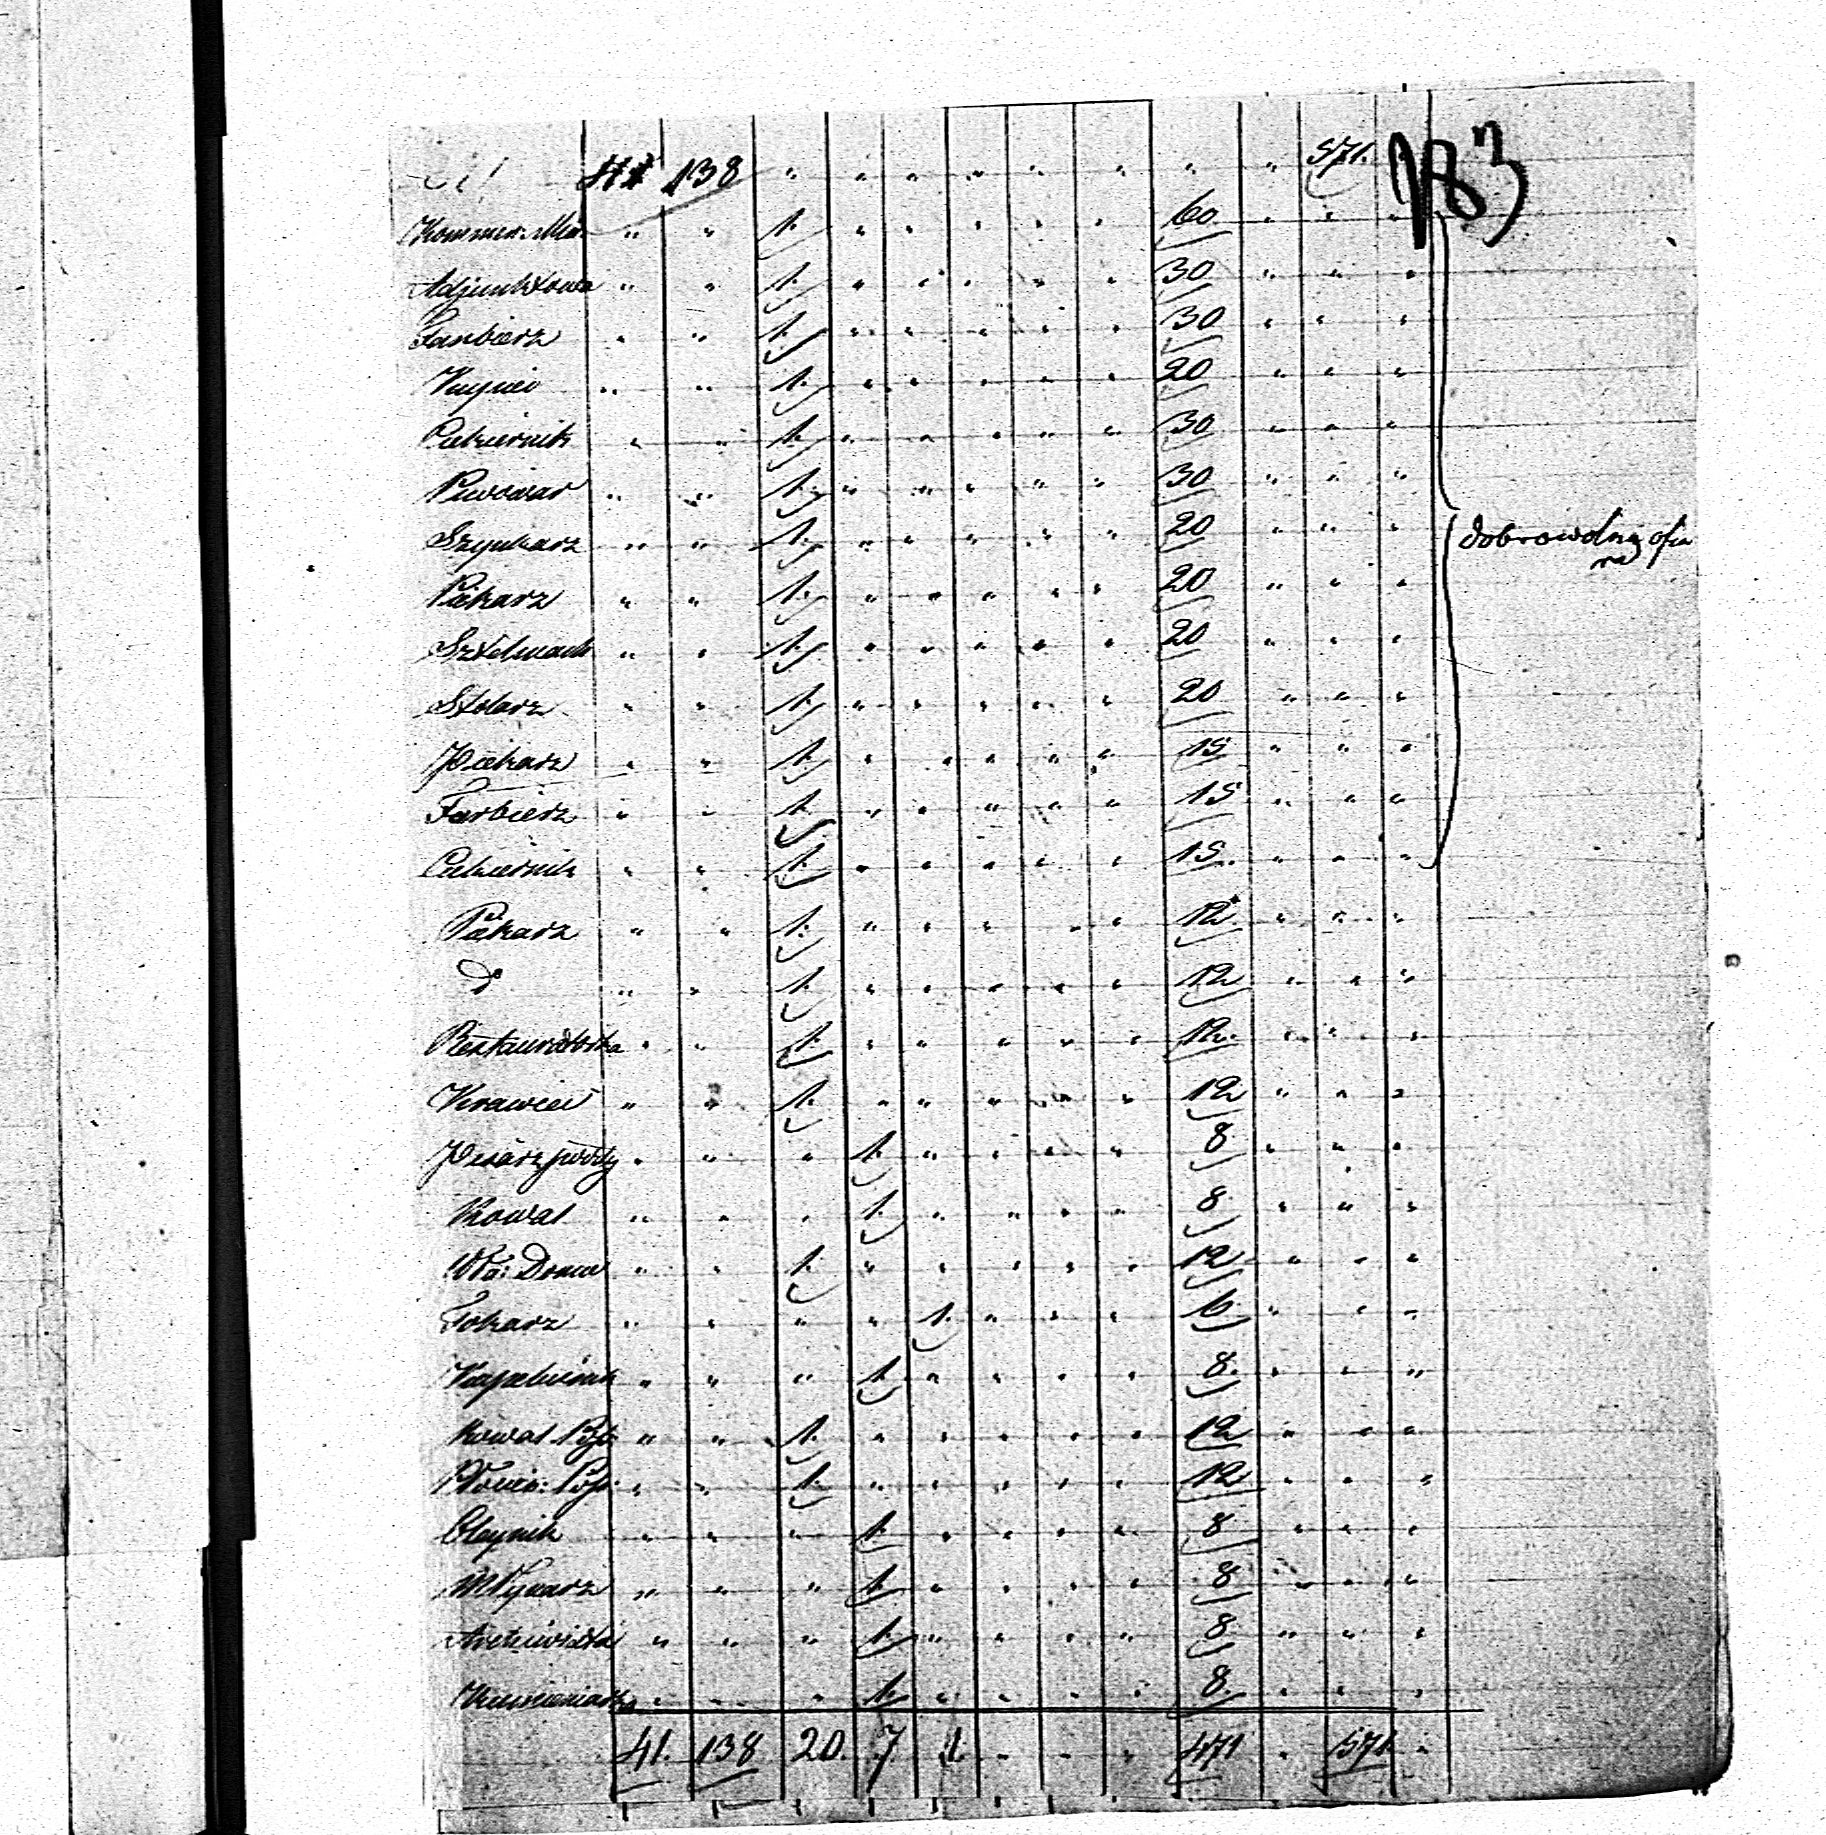 41 138 " " " " " " " " 571. 183
Kommor. Min. " " 1. " " " " " 60 " " "
Adjunktowa " " 1. " " " " " 30 " " "
Farbierz " " 1. " " " " " 30 " " "
Kupiec " " 1. " " " " " 20 " " "
Cukiernik " " 1. " " " " " 30 " " "
Piwowar " " 1. " " " " " 30 " " "
Szynkarz " " 1. " " " " " 20 " " " dobrowolną ofia
ra
Piekarz " " 1. " " " " " 20 " " "
Sztelmach " " 1. " " " " " 20 " " "
Stolarz " " 1. " " " " " 20 " " "
Piekarz " " 1. " " " " " 15 " " "
Farbierz " " 1. " " " " " 15 " " "
Cukiernik " " 1. " " " " " 15. " " "
Piekarz " " 1. " " " " " 12 " " "
do " " 1. " " " " " 12 " " "
Restauratorka " " 1. " " " " " 12. " " "
Krawiec " " 1. " " " " " 12 " " "
Pisarz " " " 1. " " " " 8 " " "
Kowal " " " 1. " " " " 8 " " "
Wła: Domu " " 1. " " " " " 12 " " "
Tokarz " " " " 1. " " " 6 " " "
Kapelusznik " " " 1. " " " " 8. " " "
Kowal " " 1. " " " " " 12 " " "
" " 1. " " " " " 12 " " "
Oleynik " " " 1. " " " " 8 " " "
Młynarz " " " 1. " " " " 8 " " "
Archiwista " " " 1. " " " " 8 " " "
" " " 1. " " " " 8 " " "
41. 138 20. 7 1. " " " 471 " 571 "